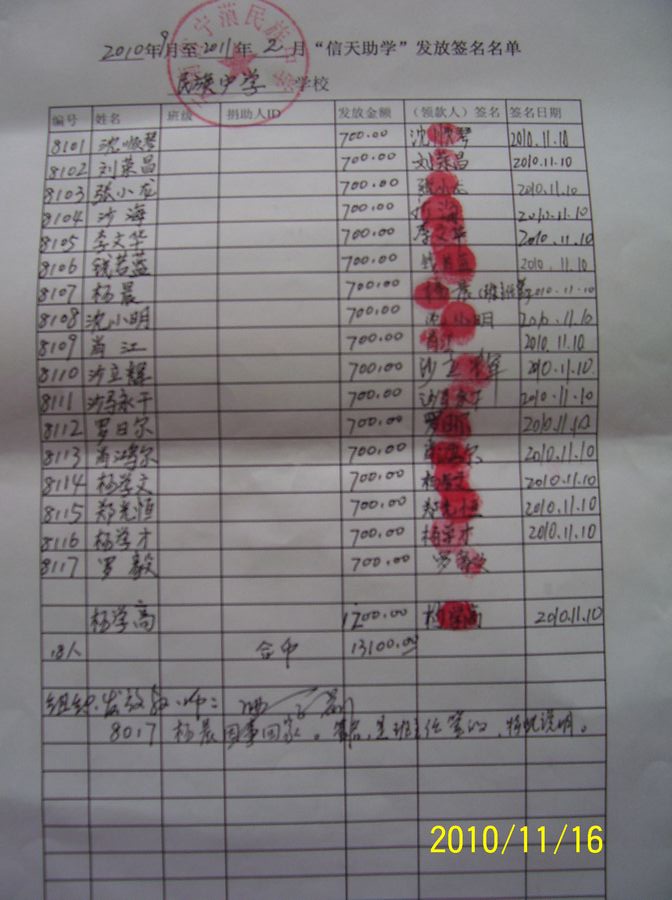 宁蒗民族
2010年9月至2011年2月“信天助学”发放签名名单
民族中学 学校
编号 姓名 班级 捐助人ID 发放金额 (领款人)签名 签名日期
8101 沈顺琴 700.00 沈顺琴 2010.11.10
8102 刘荣昌 700.00 刘荣昌 2010.11.10
8103 张小龙 700.00 张小龙 2010.11.10
8104 沙海 700.00 沙海 2010.11.10
8105 李文华 700.00 李文华 2010.11.10
8106 钱若蓝 700.00 钱若蓝 2010.11.10
8107 杨晨 700.00 杨晨(班主任签) 2010.11.10
8108 沈小明 700.00 沈小明 2010.11.10
8109 肖江 700.00 肖江 2010.11.10
8110 沙立辉 700.00 沙立辉 2010.11.10
8111 沙马永干 700.00 2010.11.10
8112 罗日尔 700.00 罗日尔 2010.11.10
8113 肖鸿尔 700.00 肖鸿尔 2010.11.10
8114 杨学文 700.00 杨学文 2010.11.10
8115 郑光恒 700.00 郑光恒 2010.11.10
8116 杨学才 700.00 杨学才 2010.11.10
8117 罗毅 700.00 罗毅
杨学高 1200.00 杨学高 2010.11.10
18人 合币 13100.00
组织发放教师:
8017 杨晨因事回家。签名,是班主任签的,特此说明。
2010/11/16